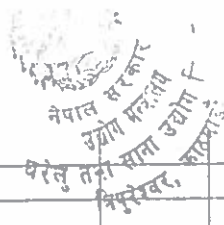 नेपाल सरकार
उद्योग मन्त्रालय
घरेलु तथा साना उद्योग
त्रिपुरेश्वर, काठमाडौं